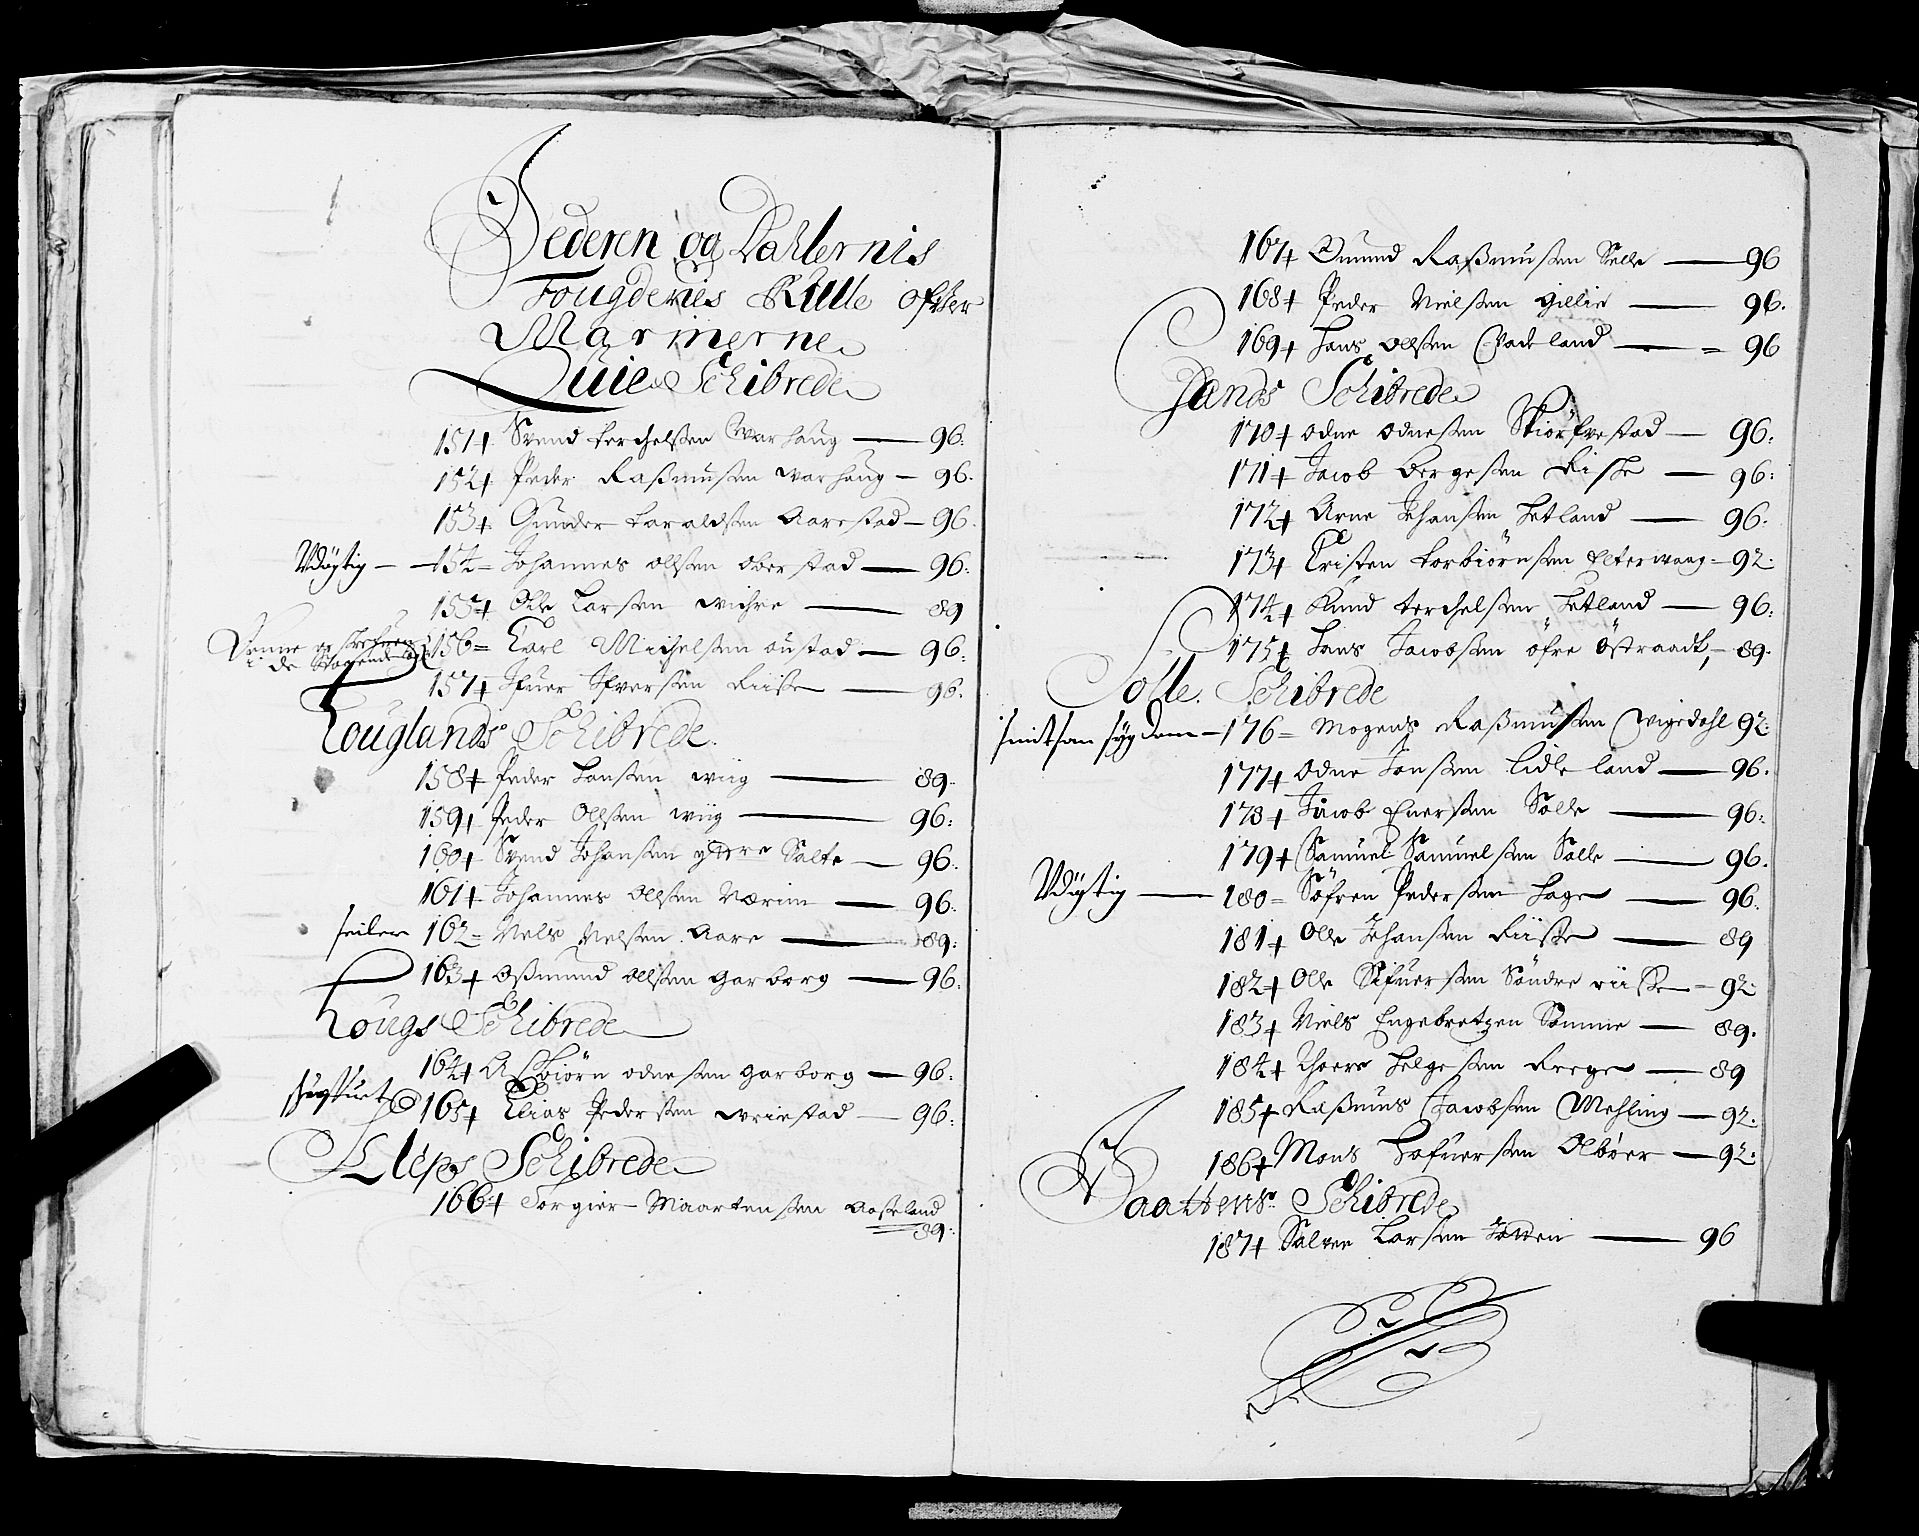 Jederen og Dahlernis
Fougderies Rulle ofver
Marinerne
Quie Schibrede
151+ Svend Torchelsen Warhaug — 96:
152+ Peder Raßmusen Warhaug — 96.
153+ Gunder Haraldsen Aarestad — 96.
Udögtig — 154= Johannes Olsen Oberstad — 96:
155+ Olle Larsen Wichre — 89
156= Carl Michelsen Austad — 96:
i de
157+ Ifuer Ifversen Riise — 96.
Houglands Schibrede.
158+ Peder Hansen Wiig — 89.
159+ Peder Olsen Wiig — 96:
160+ Svend Johansen yttre Salte — 96.
161+ Johannes Olsen Nærim — 96.
seiler 162= Nels Nelsen Aare — 89:
163+ Oßmund Olsen Garborg — 96.
Hougs Schibrede
164+ Asbiörn Odnesen Garborg — 96.
165+ Elias Pedersen Wriestad — 96.
Kleps Schibrede
166+ Torgier Maartensen Aaseland
89:
167+ Omund Raßmusen Selle — 96
168+ Peder Nielsen Gillie — 96.
169+ Hans Olsen Vadeland — = 96
Gands Schibrede
170+ Odne Odnesen Skiörfvestad — 96:
171+ Jacob Bergesen Riske — 96:
172+ Arne Johansen Hetland — 96.
173+ Cristen Torbiörnsen Elterwaag = 92:
174+ Knud Terchelsen Hetland — 96:
175+ Hans Jacobsen öfre Östraadt, — 89.
Solle Schibrede
smitsom sygdom — 176= Mogens Raßmusen Wigedahl 92:
177+ Odne Jonsen Lidle land — 96.
178+ Jacob Enersen Solle — 96:
179+ Samuel Samuelsen Solle — 96.
Udygtig — 180= Söfren Pedersen Hage — 96.
181+ Olle Johansen Riise — 89
182+ Olle Sifuersen Söndre riise — 92:
183+ Niels Engebretzen Somme — 89.
184+ Thoere Helgesen Reege — 89
185+ Raßmus Jacobsen Mehling — 92.
186+ Mons Hafuersen Olböer — 92:
Haattens Schibrede
187+ Salvee Larsen — 96